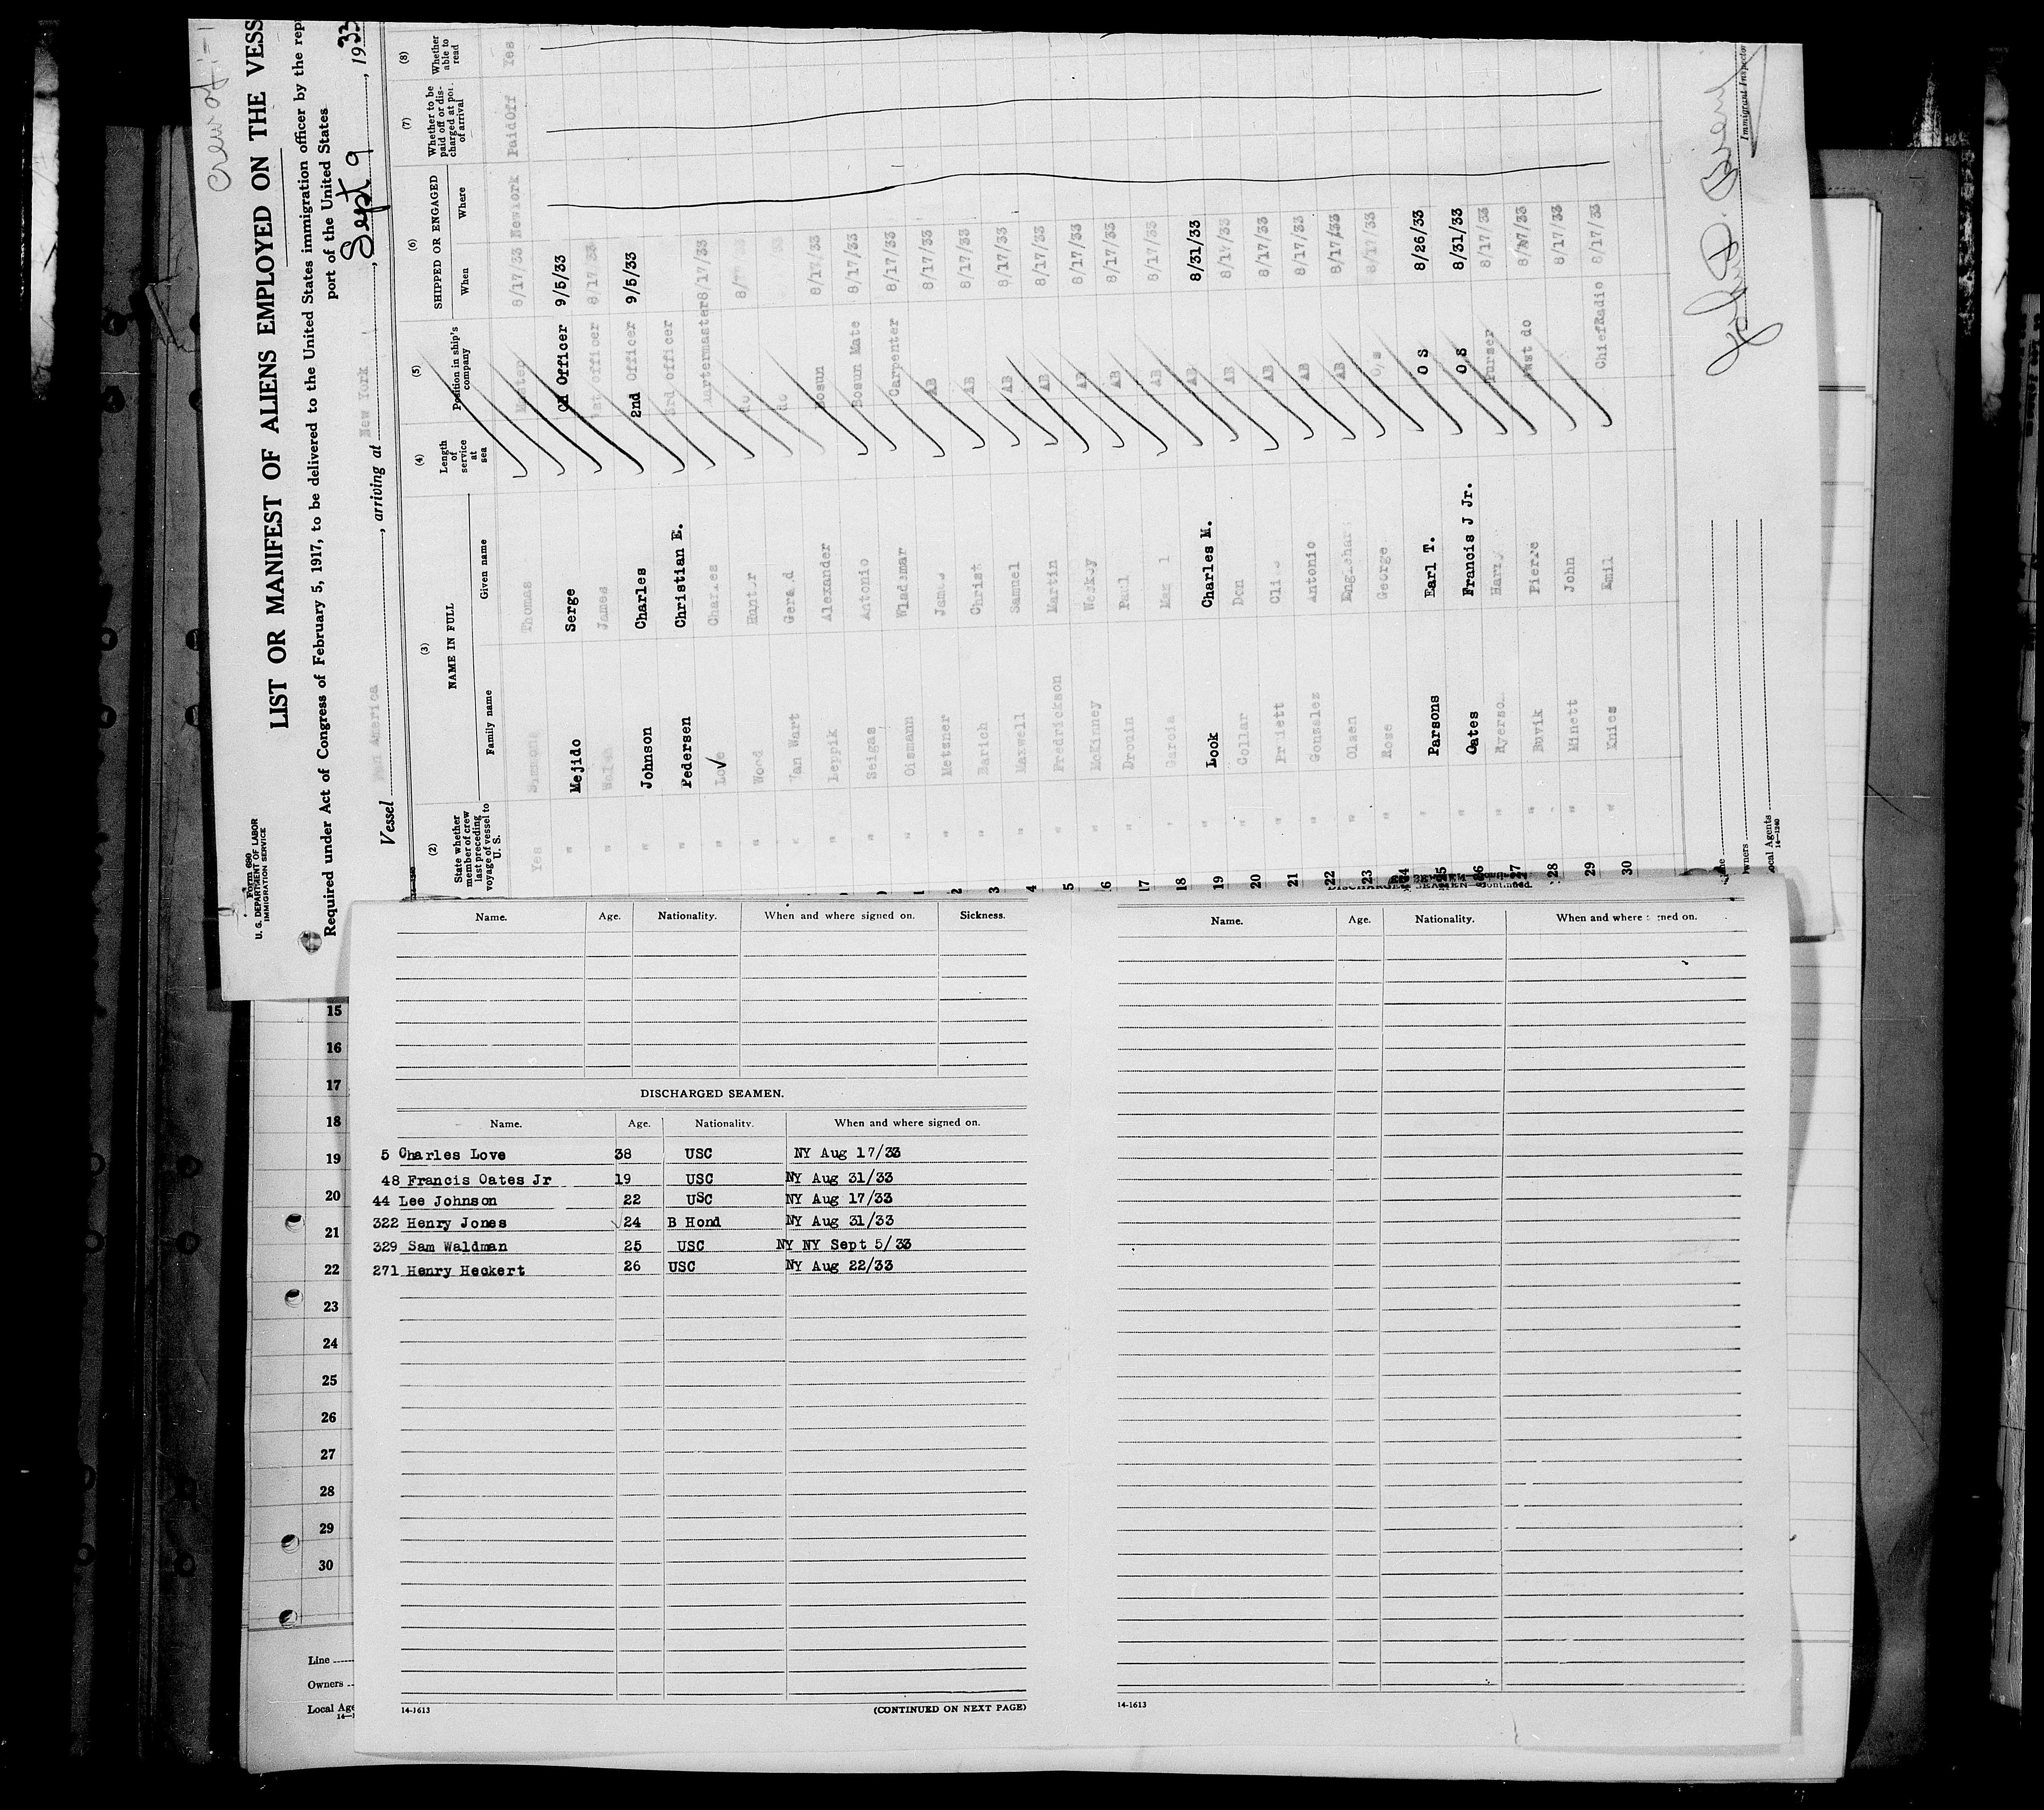 Crew of
Form 680
U. S. DEPARTMENT OF LABOR
IMMIGRATION SERVICE
LIST OR MANIFEST OF ALIENS EMPLOYED ON THE VESS
Required under Act of Congress of February 5, 1917, to be delivered to the United States immigration officer by the rep
port of the United States
Vessel Pan America, arriving at New York, Sept 9, 1933
(2) (3) (4) (5) (6) (7) (8)
State whether member of crew last preceding voyage of vessel to U. S.
NAME IN FULL
Family name Given name
Length of service at sea
Position in ship's company
SHIPPED OR ENGAGED
When Where
Whether to be paid off or discharged at port of arrival
Whether able to read
Yes Simmons Thomas Master 8/17/33 New York Paid Off Yes
" Mejido Serge Ch Officer 9/5/33
" Walsh James 1st Officer 8/17 33
" Johnson Charles 2nd Officer 9/5/33
" Pedersen Christian E. 3rd Officer
" Love Charles 8/17/33
" Wood Hunter do
" Van Wart Gerard do
" Leppik Alexander Bosun 8/17/33
" Seigas Antonio Bosun Mate 8/17/33
" Oismann Wlademar Carpenter 8/17/33
" Metzner James AB 8/17/33
" Barich Christ AB 8/17/33
" Maxwell Samuel AB 8/17/33
" Fredrickson Martin AB 8/17/33
" McKinney Weskey AB 8/17/33
" Drouin Paul AB 8/17/33
" Garcia AB 8/17/33
" Look Charles M. AB 8/31/33
" Collar Don AB 8/17/33
" AB 8/17/33
" Gonzalez Antonio AB 8/17/33
" Olsen AB 8/17/33
" Rose George O S 8/17/33
" Parsons Earl T. O S 8/26/33
" Oates Francis J Jr. O S 8/31/33
" Ryerson Harry Purser 8/17/33
" Buvik Pierre Asst do 8/17/33
" Minett John 8/17/33
" Knies Emil Chief Radio 8/17/33
1
2
3
4
5
16
17
18
19
20
21
22
23
24
25
26
27
28
29
30
Immigrant Inspector
Local Agents
14-1240
DISCHARGED SEAMEN—Continued.
Name. Age. Nationality. When and where signed on. Sickness.
Name. Age. Nationality. When and where signed on.
DISCHARGED SEAMEN.
Name. Age. Nationality. When and where signed on.
5 Charles Love 38 USC NY Aug 17/33
48 Francis Oates Jr 19 USC NY Aug 31/33
44 Lee Johnson 22 USC NY Aug 17/33
322 Henry Jones 24 B Hond NY Aug 31/33
329 Sam Waldman 25 USC NY NY Sept 5/33
271 Henry Heckert 26 USC NY Aug 22/33
14-1613
(CONTINUED ON NEXT PAGE)
14-1613
15
16
17
18
19
20
21
22
23
24
25
26
27
28
29
30
Line
Owners
Local Age
14-1